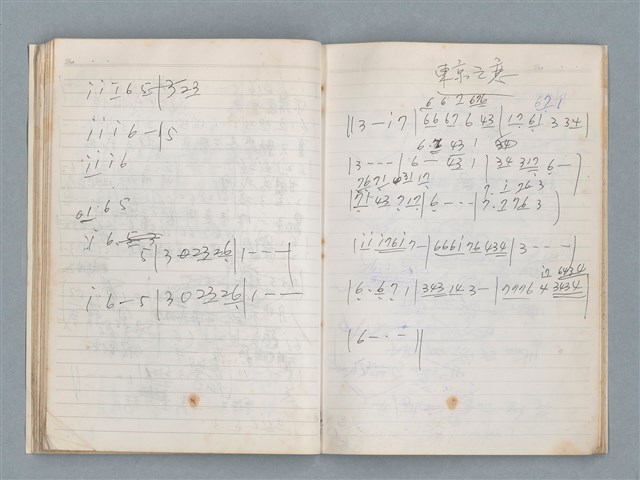 i i i 6 5 – 3 2 3
i i i 6 – | 5
i i i 6
0 1 6 5
i 6.
5 | 3 0 2 3 2 6 | 1 - - - |
i 6 – 5 | 3 0 2 3 2 6 | 1 - - -
東京之夜
6 6 7 6 7 6 6 7 1
|| 3 – i 7 | 6 6 6 7 6 4 3 | 1 7 6 1 3 3 4 |
6 . 7 4 3 1
| 3 - - - | 6 – 4 3 1 | 3 4 3 1 7 6 – |
7 6 7 1 3 1 1 7 7 . i 7 6 3
| 7 1 4 3 7 1 7 | 6 - - - | 7 . 7 7 6 3 |
| i i i 7 6 i 7 – | 6 6 6 i 7 6 4 3 4 | 3 - - - |
i 7 6 4 3 4
| 6 . 6 7 1 | 3 4 3 1 4 3 – | 7 7 7 6 4 3 4 3 4 |
| 6 - - - ||